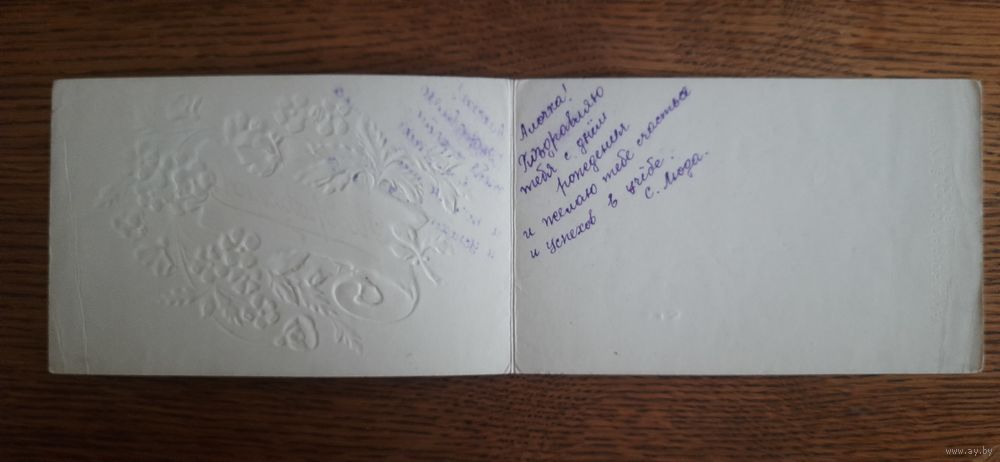 Алочка!
Поздравляю
тебя с днём
рождения
и желаю тебе счастья
и успехов в учёбе.
С. Люда.
www.ay.by